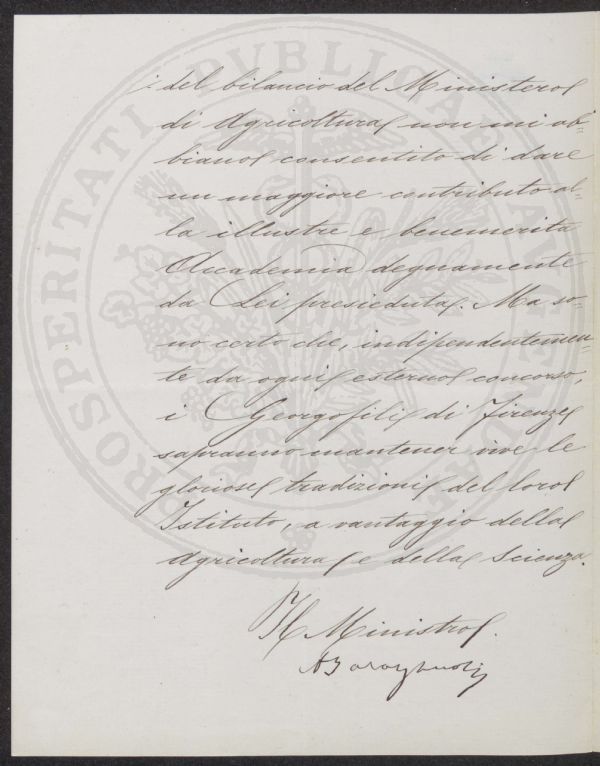 PROSPERITATI PVBLICAE AVGENDAE
del bilancio del Ministero
di Agricoltura non mi ab-
biano consentito di dare
un maggiore contributo al-
la illustre e benemerita
Accademia degnamente
da Lei presieduta. Ma so-
no certo che, indipendentemen-
te da ogni esterno concorso,
i Georgofili di Firenze
sapranno mantener vive le
gloriose tradizioni del loro
Istituto, a vantaggio della
Agricoltura e della Scienza.
Il Ministro.